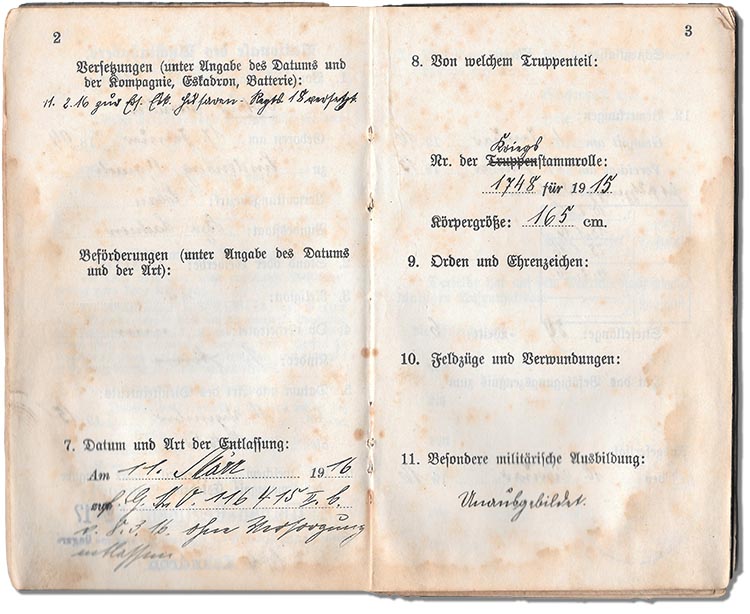 2
Versetzungen (unter Angabe des Datums und
der Kompagnie, Eskadron, Batterie):
11. 2. 16 zur Ers. Esk. Husaren-Regts 18 versetzt.
Beförderungen (unter Angabe des Datums
und der Art):
7. Datum und Art der Entlassung:
Am 11. März 1916
116 4 15
v. 8. 3. 16. ohne Versorgung
entlassen
3
8. Von welchem Truppenteil:
Kriegs
Nr. der Truppenstammrolle:
1748 für 1915
Körpergröße: 165 cm.
9. Orden und Ehrenzeichen:
10. Feldzüge und Verwundungen:
11. Besondere militärische Ausbildung:
Unausgebildet.